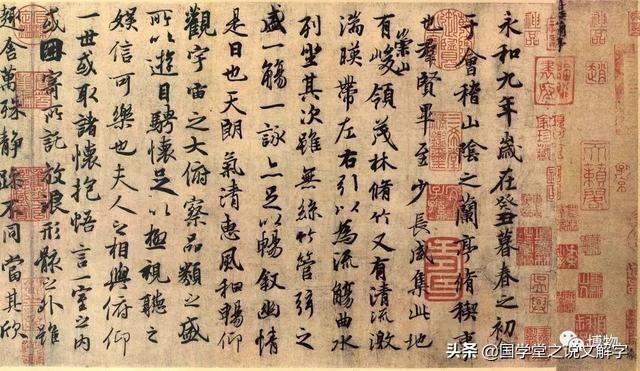 永和九年歲在癸丑暮春之初
于會稽山陰之蘭亭脩稧事
也羣賢畢至少長咸集此地
有崇山峻領茂林脩竹又有清流激
湍暎帶左右引以為流觴曲水
列坐其次雖無絲竹管弦之
盛一觴一詠亦足以暢叙幽情
是日也天朗氣清惠風和暢仰
觀宇宙之大俯察品類之盛
所以遊目騁懷足以極視聽之
娛信可樂也夫人之相與俯仰
一世或取諸懷抱悟言一室之內
或因寄所託放浪形骸之外雖
趣舍萬殊靜躁不同當其欣
博物
头条 @国学堂之说文解字